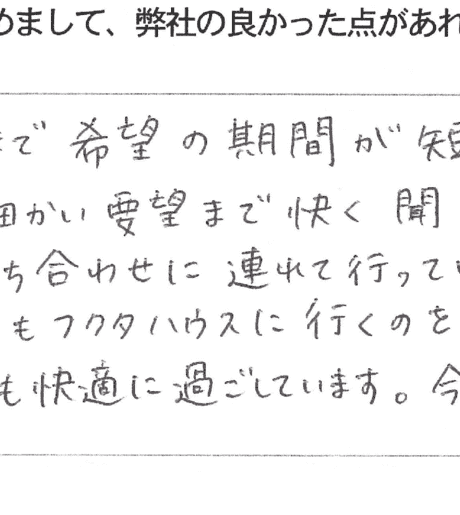 めまして、弊社の良かった点があれ
まで希望の期間が短
細かい要望まで快く聞
ち合わせに連れて行ってい
もフクタハウスに行くのを
も快適に過ごしています。今